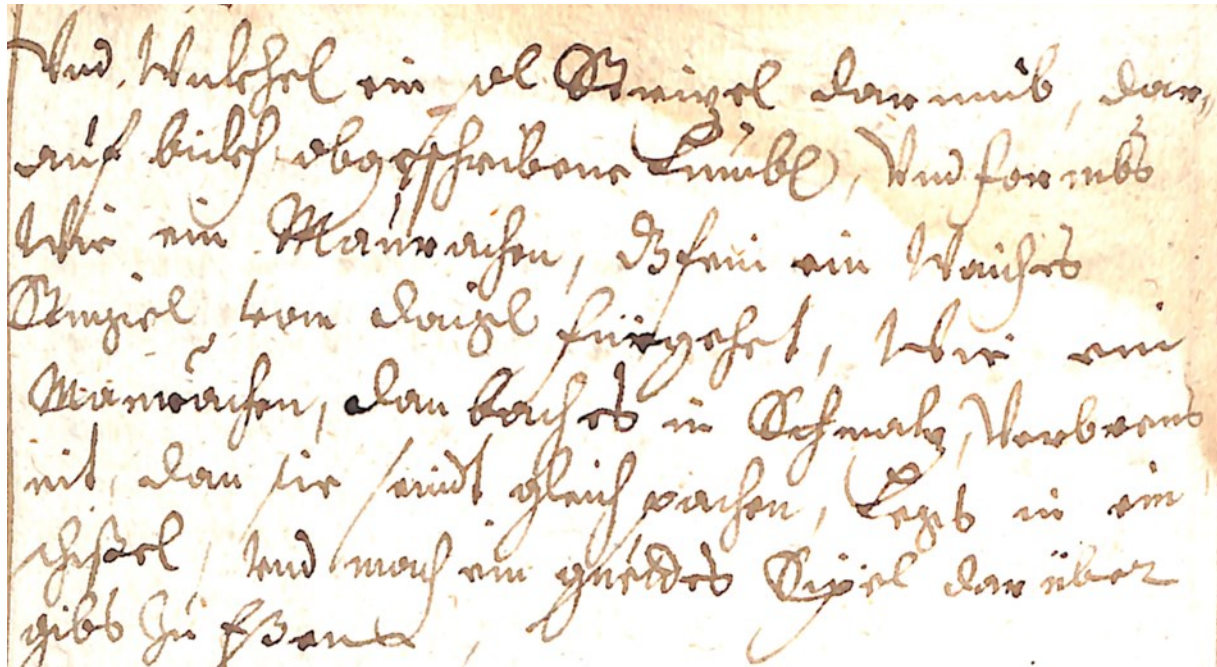 Vnd Wulchel ein ol Strizel darmüb, dar„
auf leich obgeschribene Knübl, Vnd formbs
Wie ein Maurachen, dz fein ein Waiches
Stingiel vom daigl fürgehet, Wie ein
Maurachen, dan bach es in Schmalz, Verbrens
nit, dan sie seindt gleich pachen, Legs in ein
schißel, Vnd mach ein guetdes Sipel darüber
gibs zu Eßen